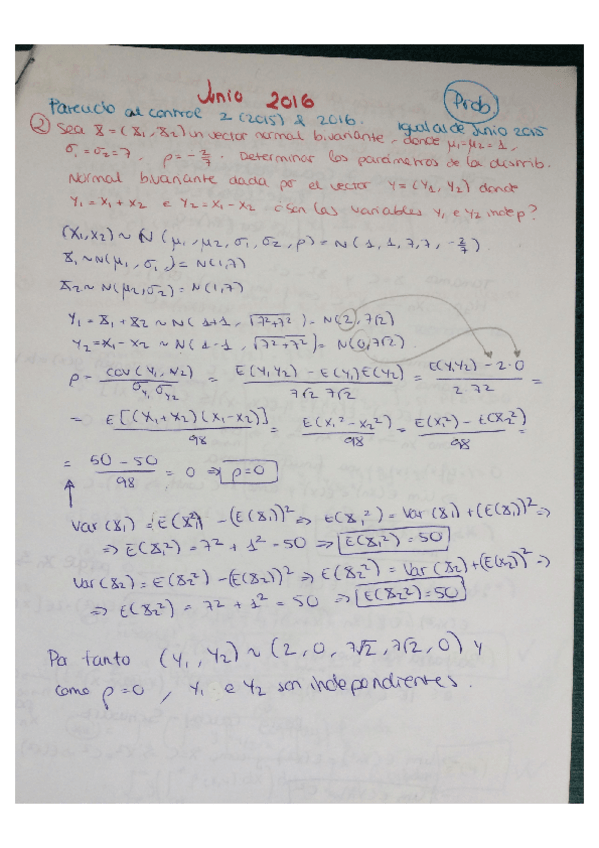 Junio 2016
Prob
Parecido al control 2 (2015) & 2016. Igual al de Junio 2015
② Sea X=(X1,X2) un vector normal bivariante, donde μ1=μ2=1,
σ1=σ2=7, ρ=-2/7. Determinar los parámetros de la distrib.
Normal bivariante dada por el vector Y=(Y1,Y2) donde
Y1=X1+X2 e Y2=X1-X2 ¿son las variables Y1 e Y2 indep?
(X1,X2)~N(μ1,μ2,σ1,σ2,ρ)=N(1,1,7,7,-2/7).
X1~N(μ1,σ1)=N(1,7)
X2~N(μ2,σ2)=N(1,7)
Y1=X1+X2~N(1+1,√7²+7²)=N(2,7√2)
Y2=X1-X2~N(1-1,√7²+7²)=N(0,7√2)
ρ = cov(Y1,Y2)/σY1 σY2 = E(Y1Y2)-E(Y1)E(Y2)/7√2 7√2 = E(Y1Y2)-2·0/2·7² =
= E[(X1+X2)(X1-X2)]/98 = E(X1²-X2²)/98 = E(X1²)-E(X2²)/98 =
= 50-50/98 = 0 ⇒ ρ=0
Var(X1)=E(X1²)-(E(X1))² ⇒ E(X1²)=Var(X1)+(E(X1))² ⇒
⇒ E(X1²)=7²+1²=50 ⇒ E(X1²)=50
Var(X2)=E(X2²)-(E(X2))² ⇒ E(X2²)=Var(X2)+(E(X2))² ⇒
⇒ E(X2²)=7²+1²=50 ⇒ E(X2²)=50
Por tanto (Y1,Y2)~(2,0,7√2,7√2,0) y
como ρ=0, Y1 e Y2 son independientes.